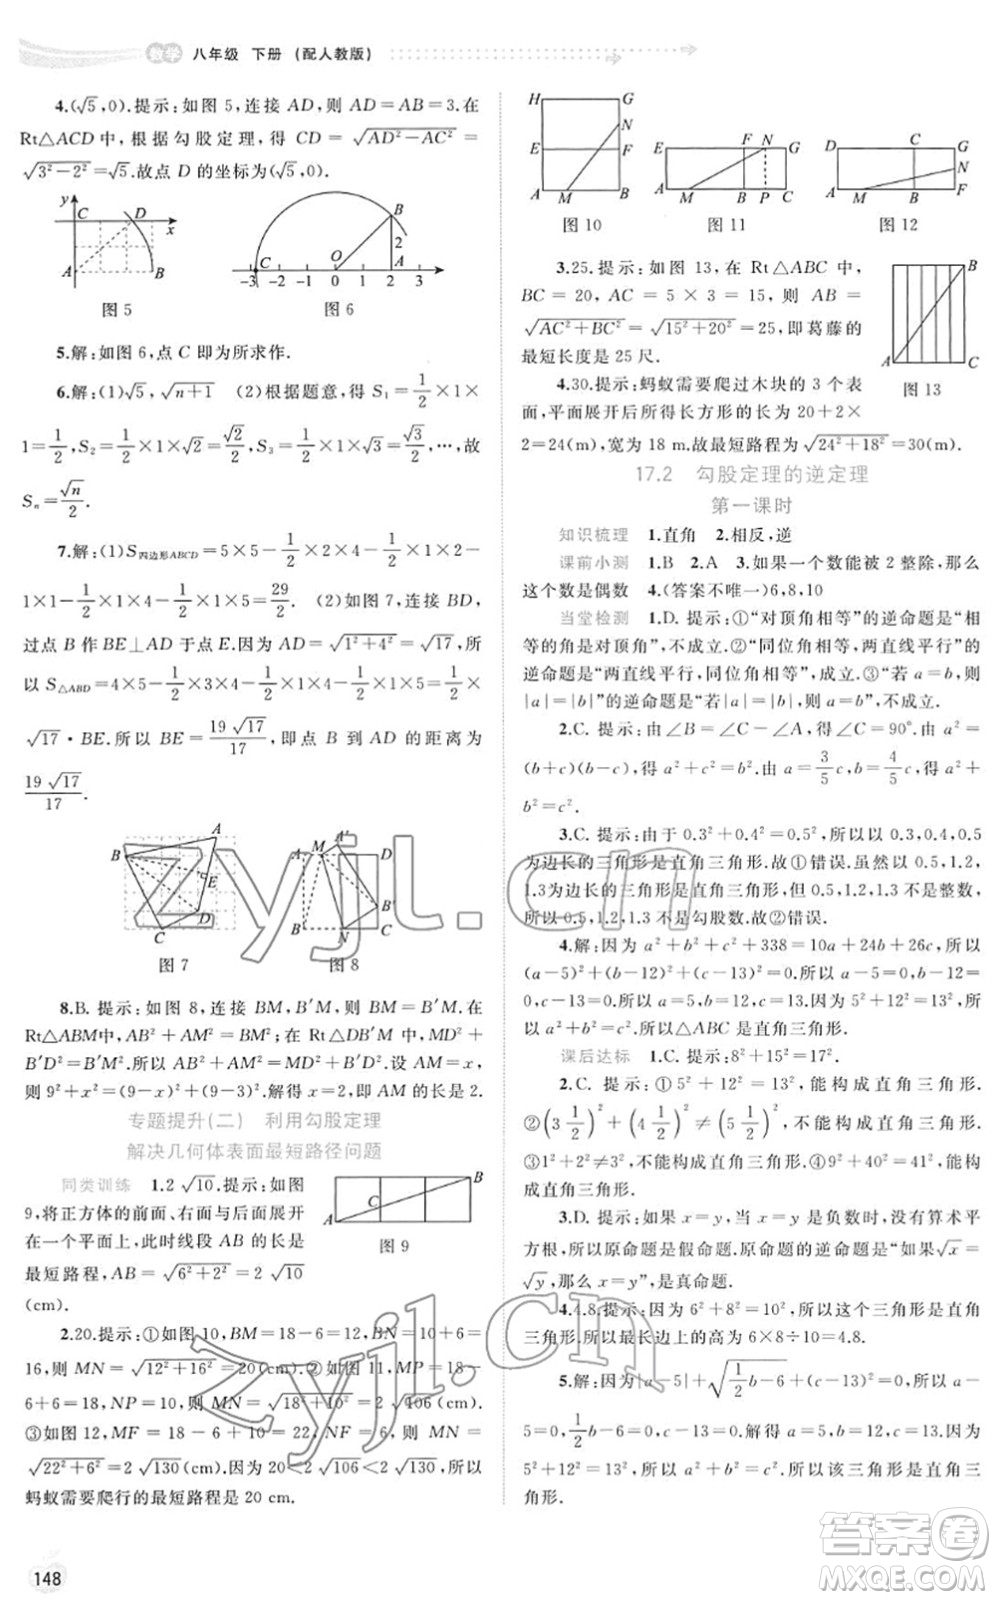 数学 八年级 下册 (配人教版)
4.(√5,0).提示:如图 5,连接 AD,则 AD=AB=3.在
Rt△ACD 中,根据勾股定理,得 CD=√(AD²-AC²)=
√(3²-2²)=√5.故点 D 的坐标为(√5,0).
y C D x
A B
图 5
B 2 O A C
-3 -2 -1 0 1 2 3
图 6
5.解:如图 6,点 C 即为所求作.
6.解:(1)√5,√(n+1) (2)根据题意,得 S₁=1/2×1×
1=1/2,S₂=1/2×1×√2=√2/2,S₃=1/2×1×√3=√3/2,…,故
Sₙ=√n/2.
7.解:(1)S四边形ABCD=5×5-1/2×1×5-1/2×1×4-
1×1-1/2×1×2-1/2×1×5=29/2. (2)如图 7,连接 BD,
过点 B 作 BE⊥AD 于点 E.因为 AD=√(1²+4²)=√17,所
以 S△ABD=4×5-1/2×3×4-1/2×1×4-1/2×1×5=1/2×
√17·BE.所以 BE=19√17/17,即点 B 到 AD 的距离为
19√17/17.
A B E D C
图 7
A M A′ D B′ B N C
图 8
8.B. 提示:如图 8,连接 BM,B′M,则 BM=B′M.在
Rt△ABM中,AB²+AM²=BM²;在 Rt△DB′M 中,MD²+
B′D²=B′M².所以 AB²+AM²=MD²+B′D².设 AM=x,
则 9²+x²=(9-x)²+(9-3)².解得 x=2,即 AM 的长是 2.
专题提升(二) 利用勾股定理
解决几何体表面最短路径问题
同类训练 1.2√10.提示:如图
9,将正方体的前面、右面与后面展开
在一个平面上,此时线段 AB 的长是
最短路程,AB=√(6²+2²)=2√10
(cm).
A C B
图 9
2.20.提示:①如图 10,BM=18-6=12,BN=10+6=
16,则 MN=√(12²+16²)=20(cm).②如图 11,MP=18-
6+10=22,NP=6.则 MN=√(22²+6²)=2√106(cm).
③如图 12,MF=18-6+10=22,NF=6.则 MN=
√(22²+6²)=2√130(cm).因为 20<2√106<2√130,所以
蚂蚁需要爬行的最短路程是 20 cm.
H G N E F A M B
图 10
E F N G A M B P C
图 11
D C G N A M B F
图 12
3.25.提示:如图 13,在 Rt△ABC 中,
BC=20,AC=5×3=15,则 AB=
√(AC²+BC²)=√(15²+20²)=25,即葛藤的
最短长度是 25 尺.
B A C
图 13
4.30.提示:蚂蚁需要爬过木块的 3 个表
面,平面展开后所得长方形的长为 20+2×
2=24(m),宽为 18 m.故最短路程为√(24²+18²)=30(m).
17.2 勾股定理的逆定理
第一课时
知识梳理 1.直角 2.相反,逆
课前小测 1.B 2.A 3.如果一个数能被 2 整除,那么
这个数是偶数 4.(答案不唯一)6,8,10
当堂检测 1.D. 提示:①“对顶角相等”的逆命题是“相
等的角是对顶角”,不成立.②“同位角相等,两直线平行”的
逆命题是“两直线平行,同位角相等”,成立.③“若 a=b,则
|a|=|b|”的逆命题是“若|a|=|b|,则 a=b”,不成立.
2.C. 提示:由∠B=∠C-∠A,得∠C=90°.由 a²=
(b+c)(b-c),得 a²+c²=b².由 a=3/5c,b=4/5c,得 a²+
b²=c².
3.C. 提示:由于 0.3²+0.4²=0.5²,所以以 0.3,0.4,0.5
为边长的三角形是直角三角形.故①错误.虽然以 0.5,1.2,
1.3为边长的三角形是直角三角形,但 0.5,1.2,1.3 不是整数,
所以 0.5,1.2,1.3 不是勾股数.故②错误.
4.解:因为 a²+b²+c²+338=10a+24b+26c,所以
(a-5)²+(b-12)²+(c-13)²=0.所以 a-5=0,b-12=
0,c-13=0.所以 a=5,b=12,c=13.因为 5²+12²=13²,所
以 a²+b²=c².所以△ABC 是直角三角形.
课后达标 1.C. 提示:8²+15²=17².
2.C. 提示:①5²+12²=13²,能构成直角三角形.
②(3 1/2)²+(4 1/2)²≠(5 1/2)²,不能构成直角三角形.
③1²+2²≠3²,不能构成直角三角形.④9²+40²=41²,能构
成直角三角形.
3.D. 提示:如果 x=y,当 x=y 是负数时,没有算术平
方根,所以原命题是假命题.原命题的逆命题是“如果√x=
√y,那么 x=y”,是真命题.
4.4.8.提示:因为 6²+8²=10²,所以这个三角形是直角
三角形.所以最长边上的高为 6×8÷10=4.8.
5.解:因为|a-5|+√(1/2b-6)+(c-13)²=0,所以 a-
5=0,1/2b-6=0,c-13=0.解得 a=5,b=12,c=13.因为
5²+12²=13²,所以 a²+b²=c².所以该三角形是直角三
角形.
148
zyjl.cn
zyjl.cn
答案圈
MXQE.COM